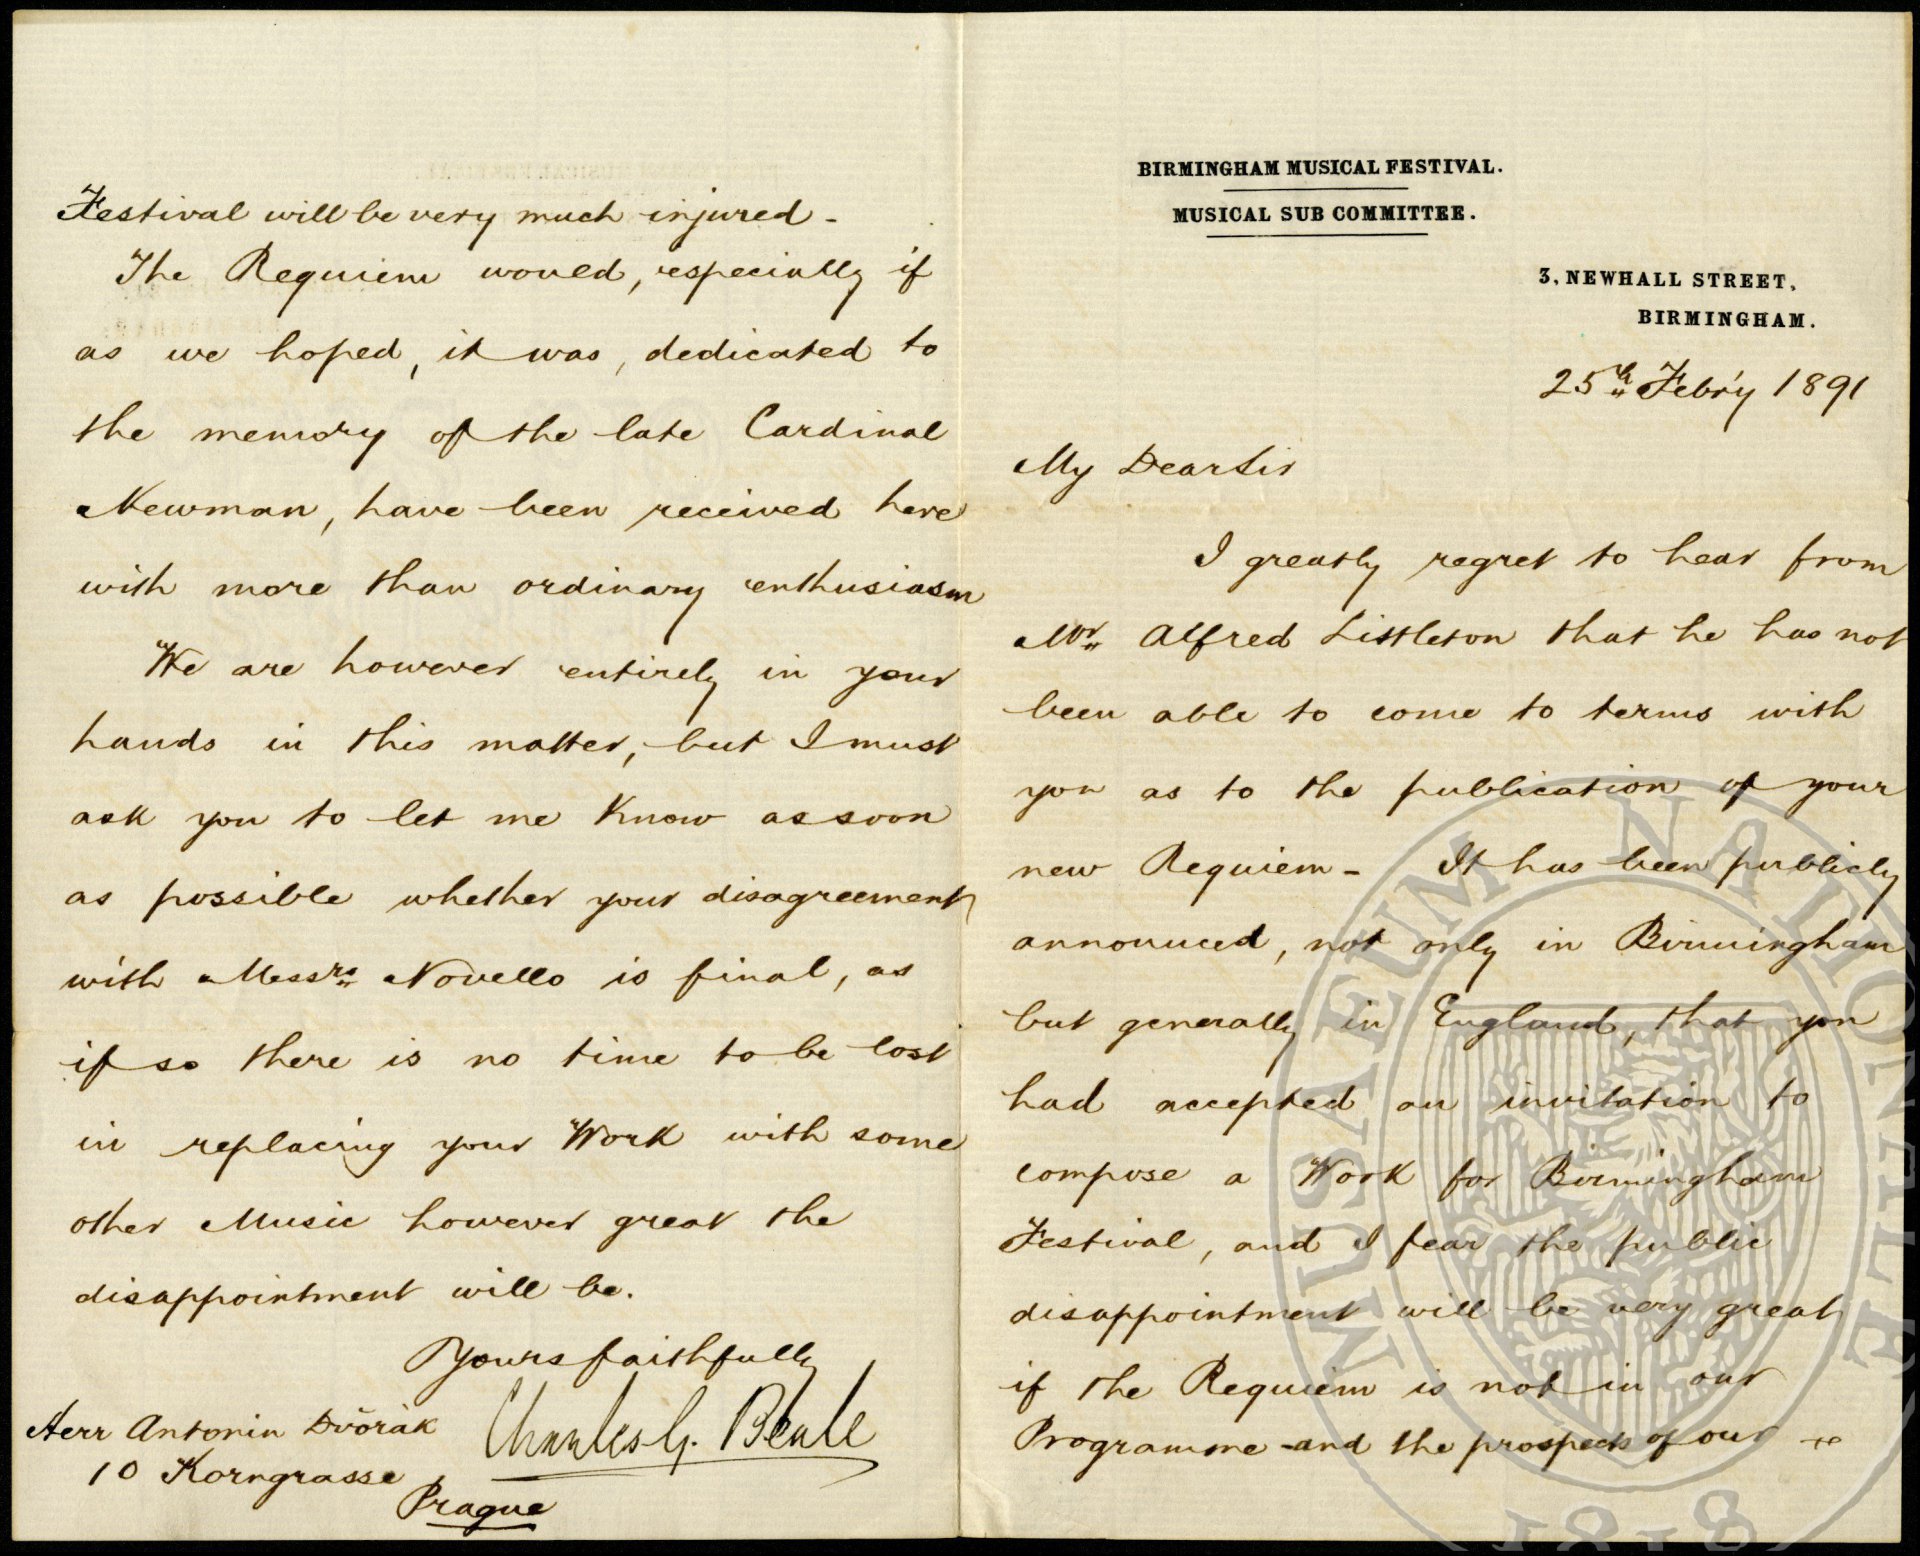 BIRMINGHAM MUSICAL FESTIVAL.
MUSICAL SUB COMMITTEE.
3, NEWHALL STREET,
BIRMINGHAM.
25th Feb'ry 1891
My Dear Sir
I greatly regret to hear from
Mr Alfred Littleton that he has not
been able to come to terms with
you as to the publication of your
new Requiem - It has been publicly
announced, not only in Birmingham
but generally in England, that you
had accepted an invitation to
compose a Work for Birmingham
Festival, and I fear the public
disappointment will be very great
if the Requiem is not in our
Programme and the prospects of our
Festival will be very much injured -
The Requiem would, especially if
as we hoped, it was, dedicated to
the memory of the late Cardinal
Newman, have been received here
with more than ordinary enthusiasm
We are however entirely in your
hands in this matter, but I must
ask you to let me know as soon
as possible whether your disagreement
with Messrs Novello is final, as
if so there is no time to be lost
in replacing your Work with some
other Music however great the
disappointment will be.
Yours faithfully
Charles G. Beale
Herr Antonin Dvořàk
10 Korngrasse
Prague
MUSAEUM NATIONALE
1818